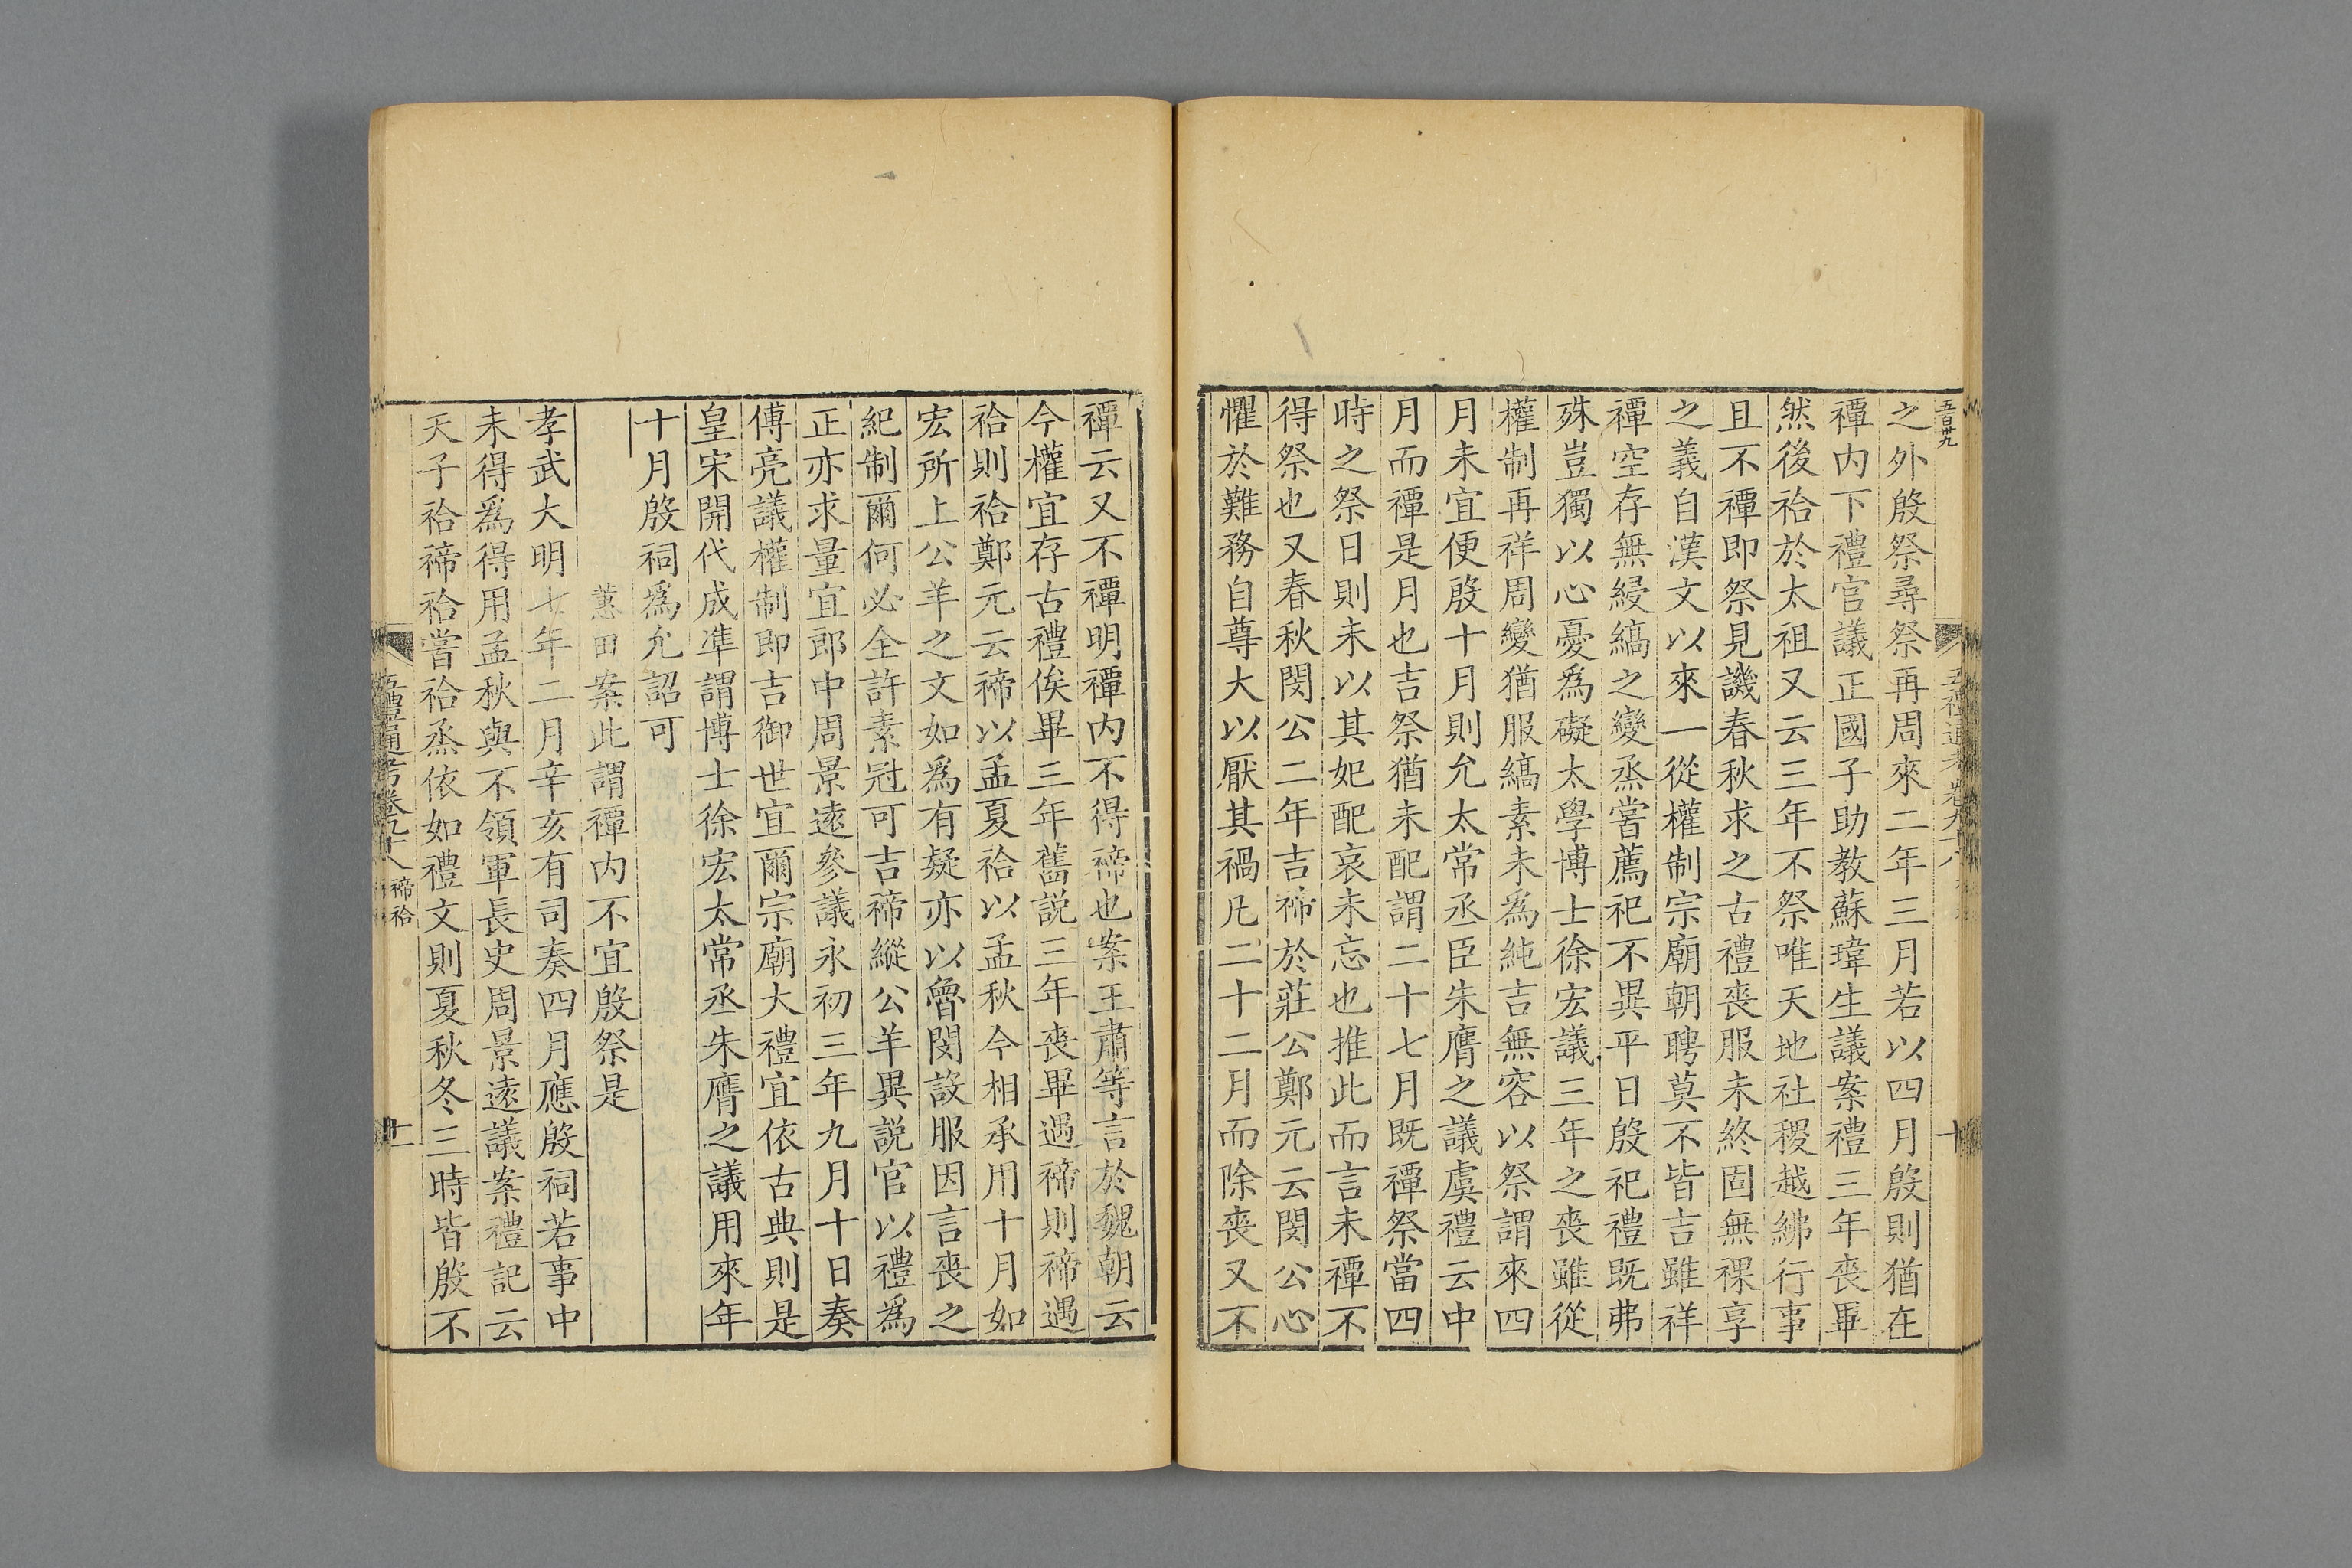 五百卅九
之外殷祭尋祭再周來二年三月若以四月殷則猶在
禫内下禮官議正國子助教蘇瑋生議案禮三年喪畢
然後祫於太祖又云三年不祭唯天地社稷越紼行事
且不禫即祭見譏春秋求之古禮喪服未終固無祼享
之義自漢文以來一從權制宗廟朝聘莫不皆吉雖祥
禫空存無綅縞之變烝嘗薦祀不異平日殷祀禮既弗
殊豈獨以心憂爲礙太學博士徐宏議三年之喪雖從
權制再祥周變猶服縞素未爲純吉無容以祭謂來四
月未宜便殷十月則允太常丞臣朱膺之議虞禮云中
月而禫是月也吉祭猶未配謂二十七月既禫祭當四
時之祭日則未以其妃配哀未忘也推此而言未禫不
得祭也又春秋閔公二年吉禘於莊公鄭元云閔公心
懼於難務自尊大以厭其禍凡二十二月而除喪又不
五禮通考卷九十八
十
禫云又不禫明禫内不得禘也案王肅等言於魏朝云
今權宜存古禮俟畢三年舊説三年喪畢遇禘則禘遇
祫則祫鄭元云禘以孟夏祫以孟秋今相承用十月如
宏所上公羊之文如爲有疑亦以魯閔設服因言喪之
紀制爾何必全許素冠可吉禘縱公羊異説官以禮爲
正亦求量宜郎中周景遠參議永初三年九月十日奏
傅亮議權制即吉御世宜爾宗廟大禮宜依古典則是
皇宋開代成準謂博士徐宏太常丞朱膺之議用來年
十月殷祠爲允詔可
蕙田案此謂禫内不宜殷祭是
孝武大明七年二月辛亥有司奏四月應殷祠若事中
未得爲得用孟秋與不領軍長史周景遠議案禮記云
天子祫禘祫嘗祫烝依如禮文則夏秋冬三時皆殷不
五禮通考卷九十八 禘祫
十一